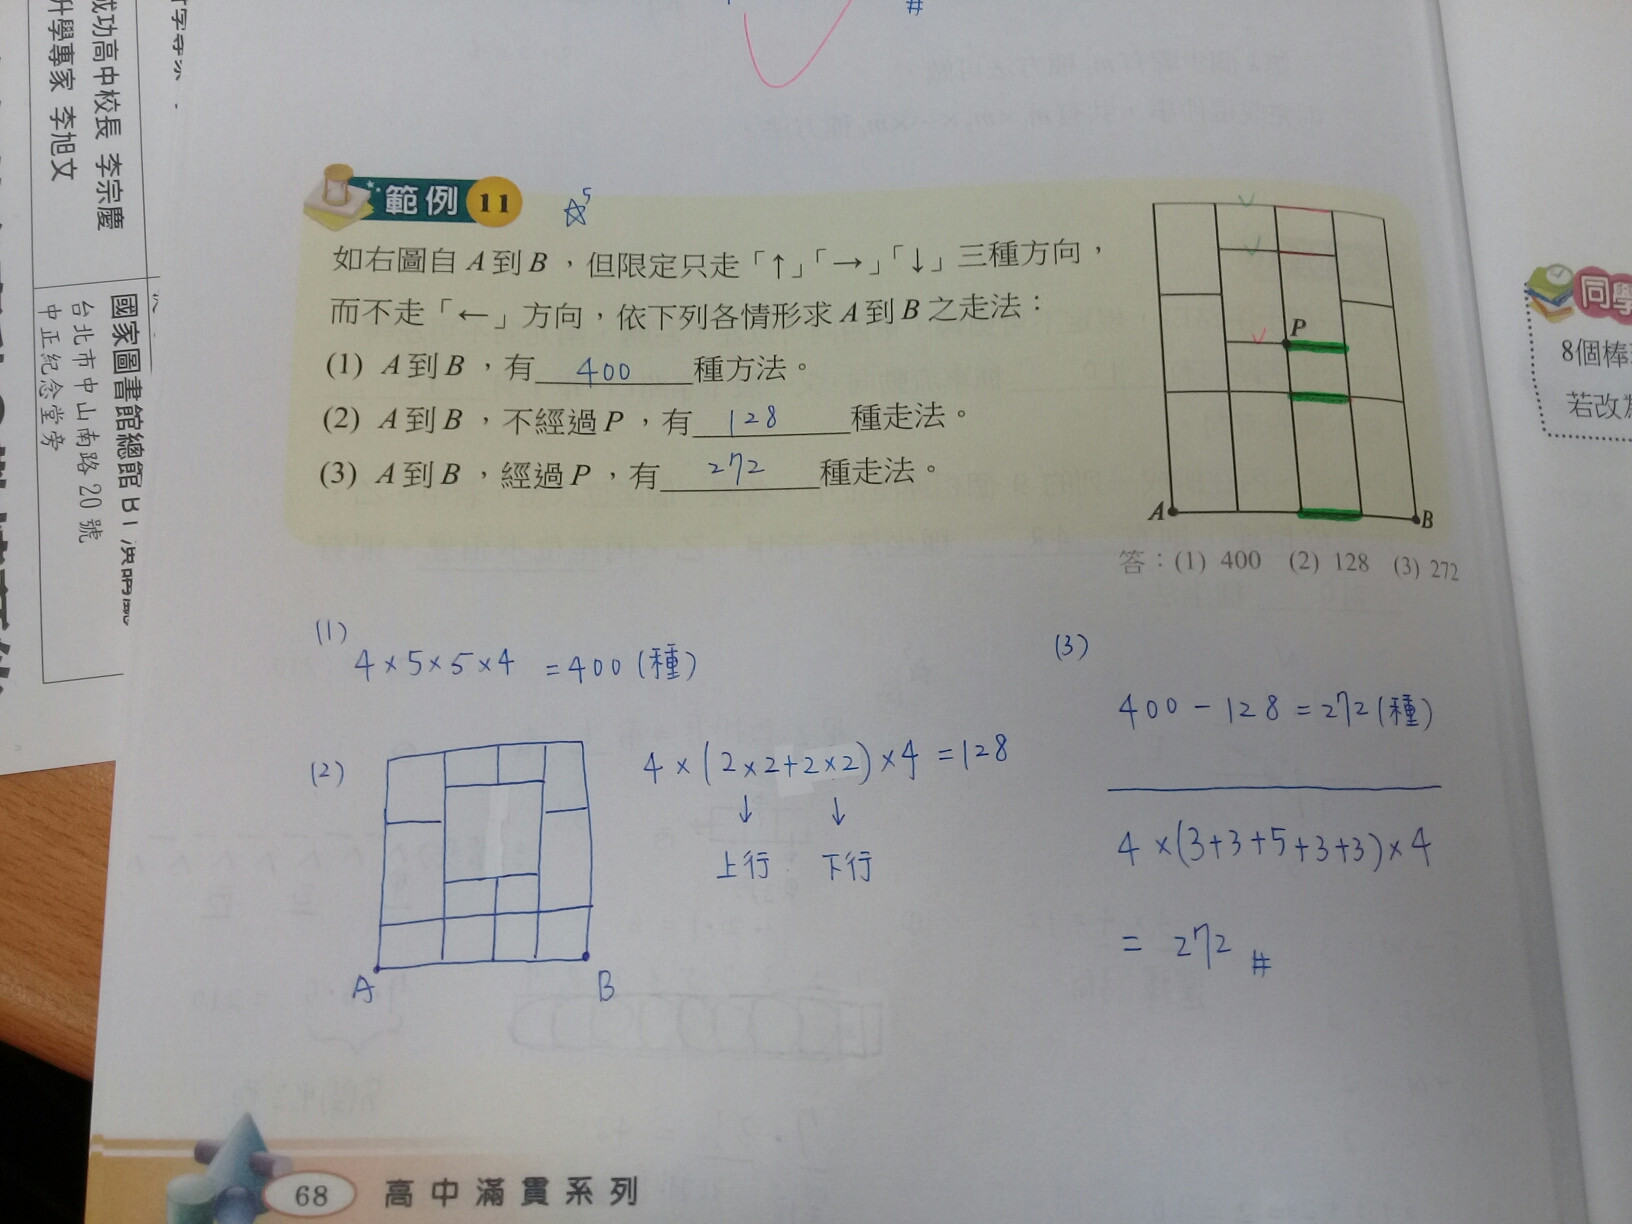 成功高中校長 李宗慶
升學專家 李旭文
國家圖書館總館B1
台北市中山南路20號
中正紀念堂旁
#
範例 11
☆5
如右圖自A到B,但限定只走「↑」「→」「↓」三種方向,
而不走「←」方向,依下列各情形求A到B之走法:
(1) A到B,有 400 種方法。
(2) A到B,不經過P,有 128 種走法。
(3) A到B,經過P,有 272 種走法。
P
A
B
答:(1) 400 (2) 128 (3) 272
同學
8個棒
若改為
(1)
4×5×5×4 =400(種)
(2)
A
B
4×(2×2+2×2)×4 =128
↓ ↓
上行 下行
(3)
400-128=272(種)
4×(3+3+5+3+3)×4
= 272 #
68 高中滿貫系列